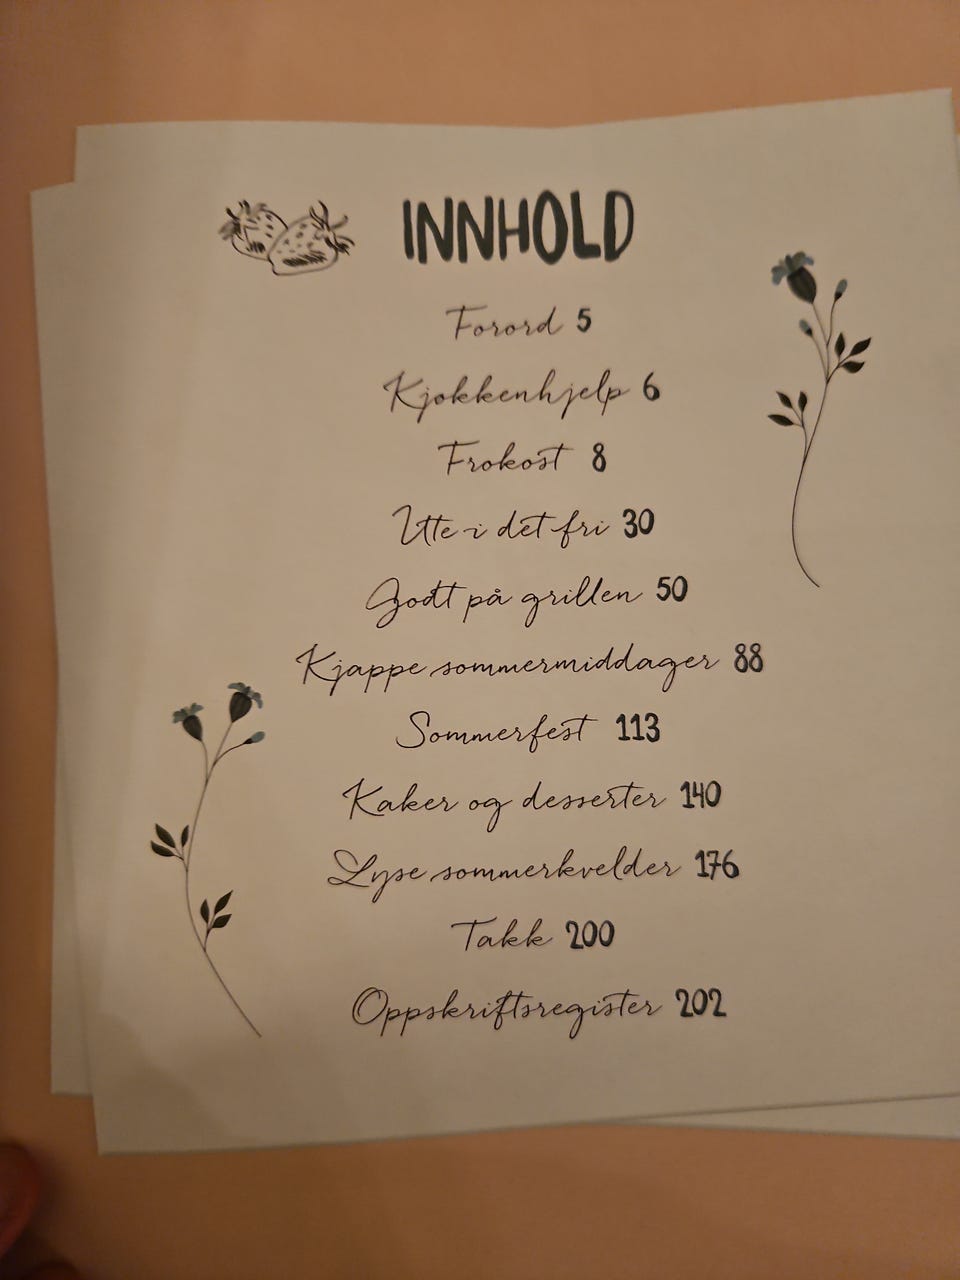 INNHOLD
Forord 5
Kjøkkenhjelp 6
Frokost 8
Ute i det fri 30
Godt på grillen 50
Kjappe sommermiddager 88
Sommerfest 113
Kaker og desserter 140
Lyse sommerkvelder 176
Takk 200
Oppskriftsregister 202